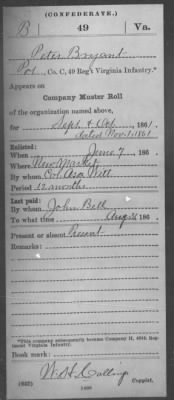 (CONFEDERATE.)
B 49 Va.
Peter Bryant
Pvt., Co. C, 49 Reg't Virginia Infantry.*
Appears on
Company Muster Roll
of the organization named above,
for Sept & Oct, 1861.
dated Nov 1, 1861
Enlisted:
When June 7, 186 .
Where New Market
By whom Col. Asa Witt
Period 12 months
Last paid:
By whom John Bell
To what time Aug 31, 186 .
Present or absent Present
Remarks:
*This company subsequently became Company H, 49th Reg-
iment Virginia Infantry.
Book mark:
W. H. Collins
(642) Copyist.